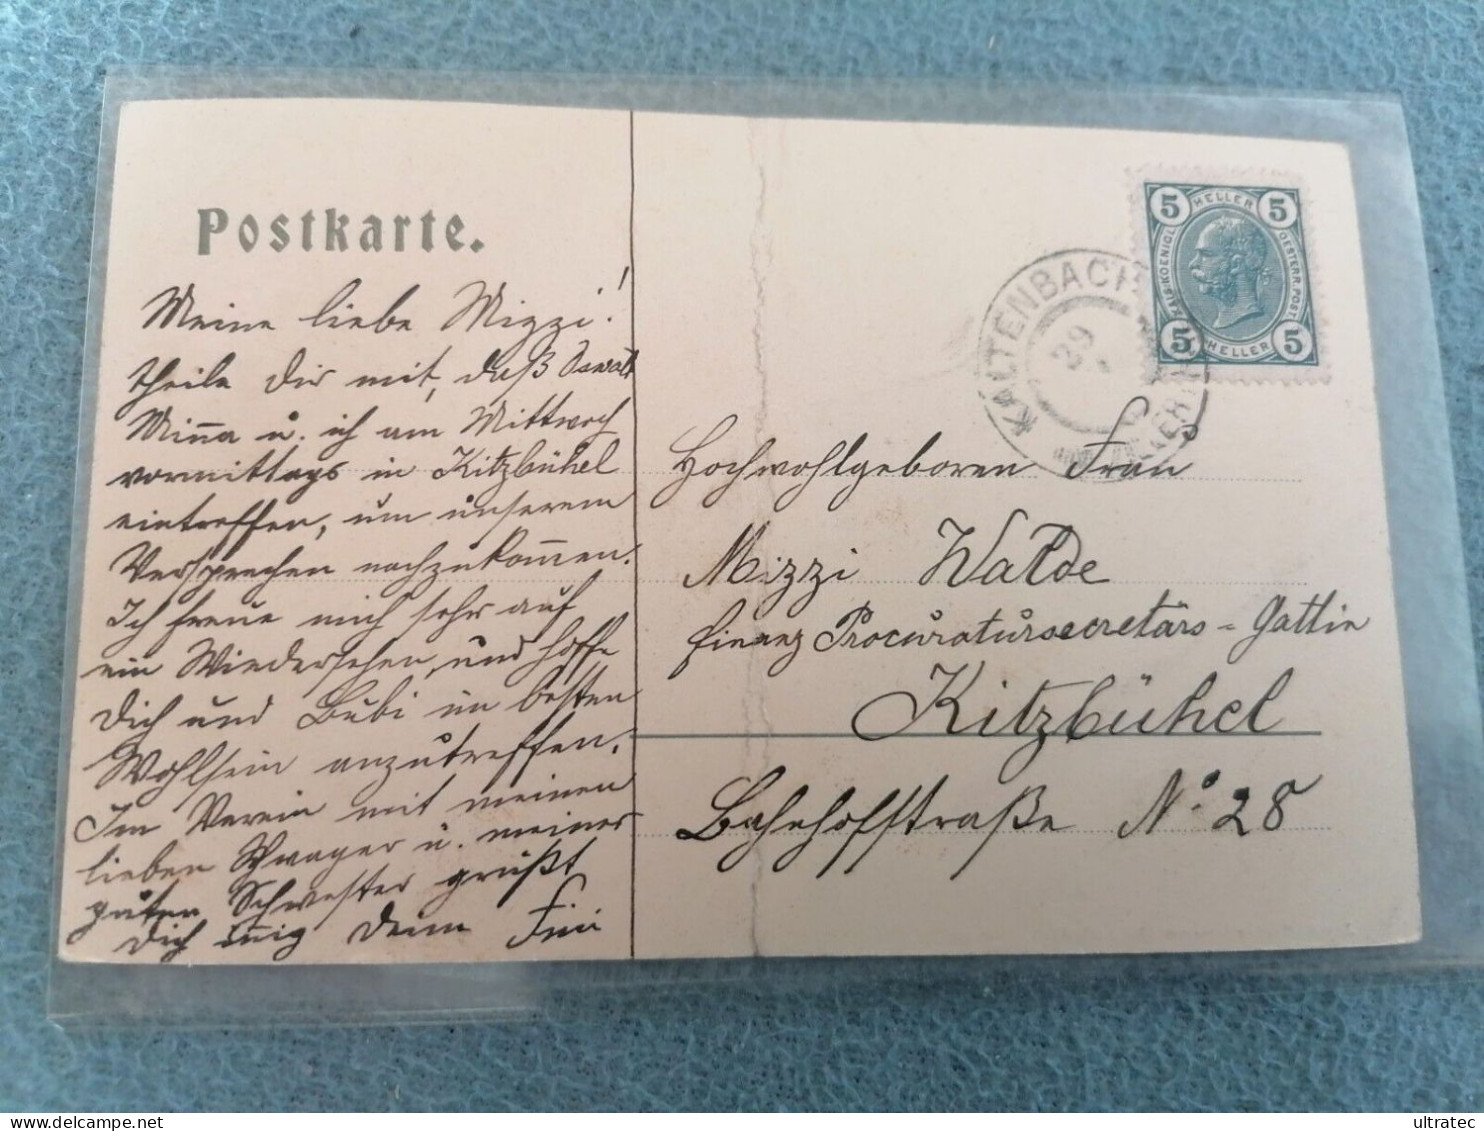 Postkarte.
Meine liebe Mizzi!
theile Dir mit, daß Oswald
Minna u. ich am Mittwoch
vormittags in Kitzbühel
eintreffen, um unserem
Versprechen nachzukommen.
Ich freue mich sehr auf
ein Wiedersehen, und hoffe
Dich und Bubi im besten
Wohlsein anzutreffen.
Im Verein mit meinen
lieben Schwager u. meiner
guten Schwester grüßt
Dich innig Deine Fini
5 HELLER 5
KAIS. KOENIGL. OESTERR. POST
5 HELLER 5
KALTENBACH
29
Hochwohlgeboren Frau
Mizzi Walde
Finanz Procuratursecretärs-Gattin
Kitzbühel
Bahnhofstraße No. 28
ultratec